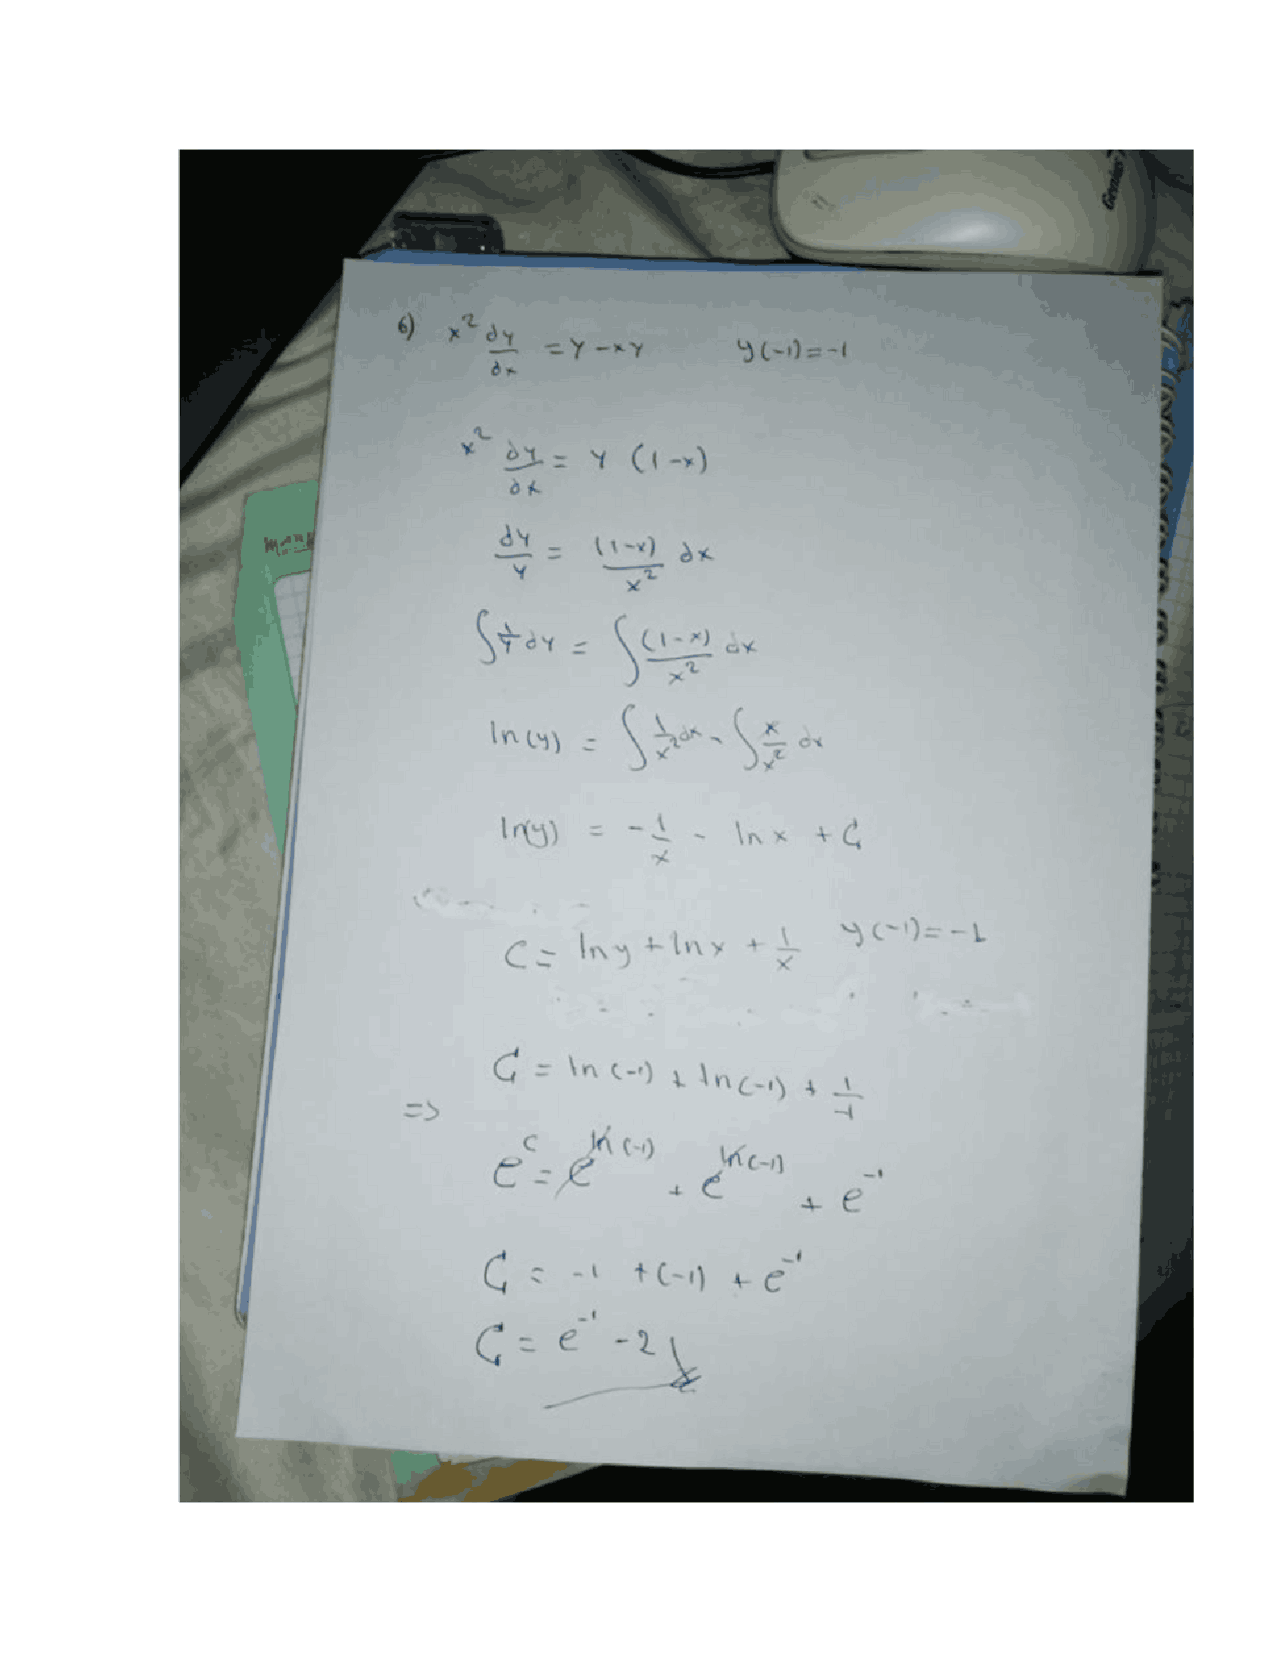 Genius
6) x² dy/dx = y - xy y(-1) = -1
x² dy/dx = y (1-x)
dy/y = (1-x)/x² dx
∫ 1/y dy = ∫ (1-x)/x² dx
ln(y) = ∫ 1/x² dx - ∫ x/x² dx
ln(y) = - 1/x - ln x + C₁
C = ln y + ln x + 1/x y(-1) = -1
C₁ = ln(-1) + ln(-1) + 1/-1
=>
e^c = e^ln(-1) + e^ln(-1) + e^-1
C₁ = -1 + (-1) + e^-1
C₁ = e^-1 - 2